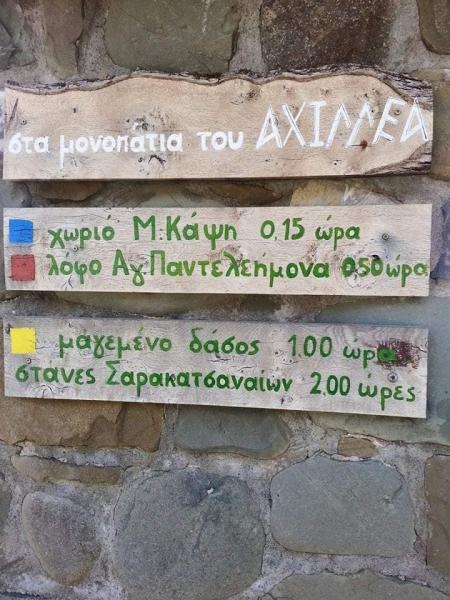 στα μονοπάτια του ΑΧΙΛΛΕΑ
χωριό Μ.Κάψη 0,15 ώρα
λόφο Αγ.Παντελεήμονα 0,50 ώρα
μαγεμένο δάσος 1.00 ώρα
στάνες Σαρακατσαναίων 2,00 ωρες